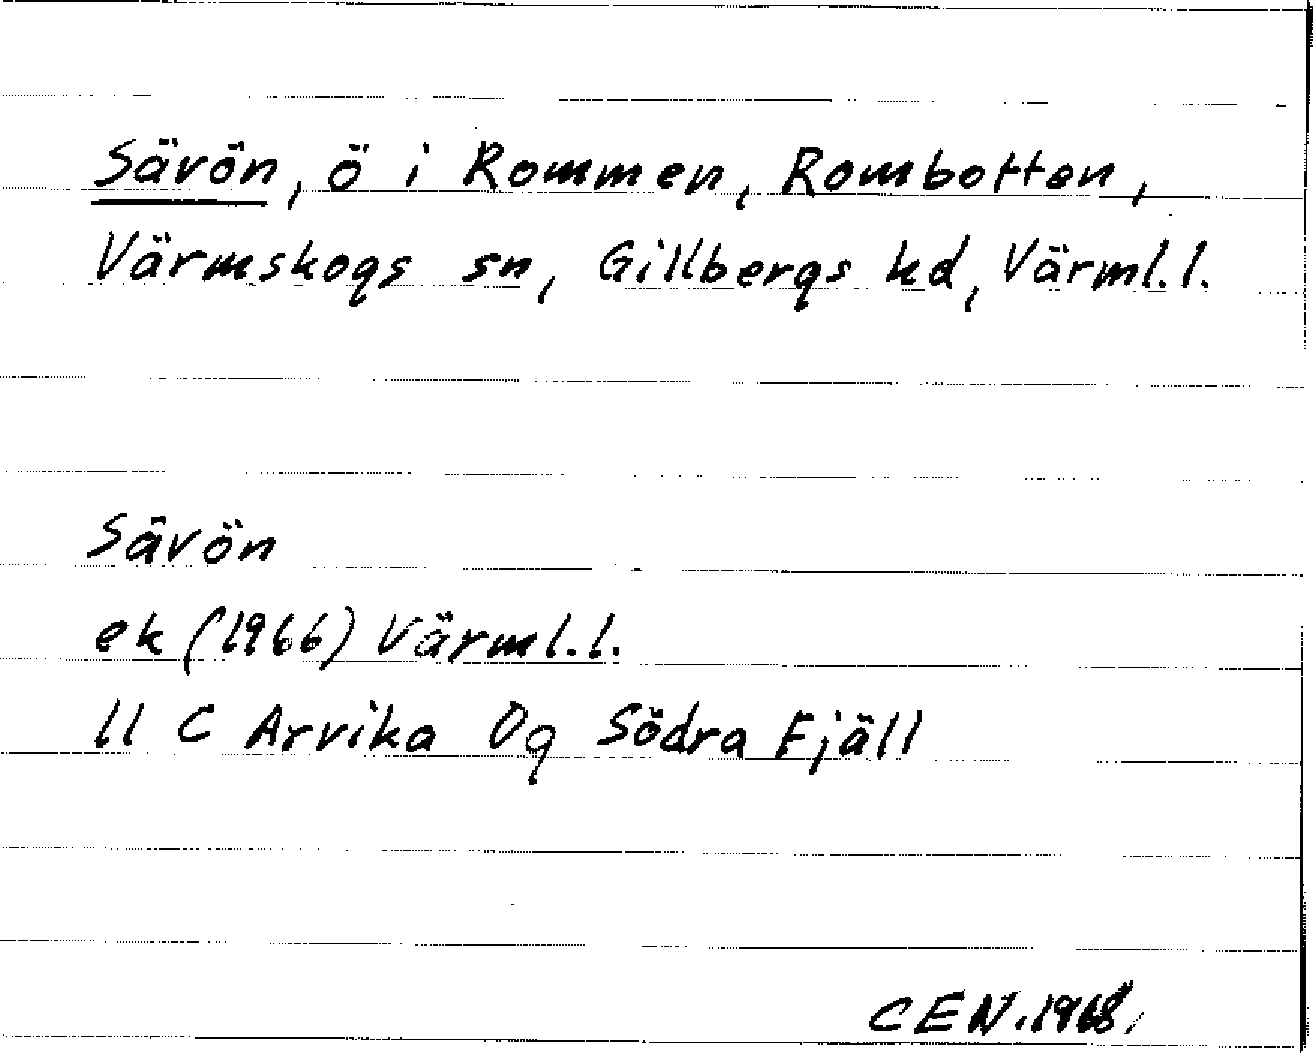 Sävön, ö i Rommen, Rombotten,
Värmskogs sn, Gillbergs hd, Värml.l.
Sävön
ek (1966) Värml.l.
11 C Arvika 0g Södra Fjäll
CEN.1968.